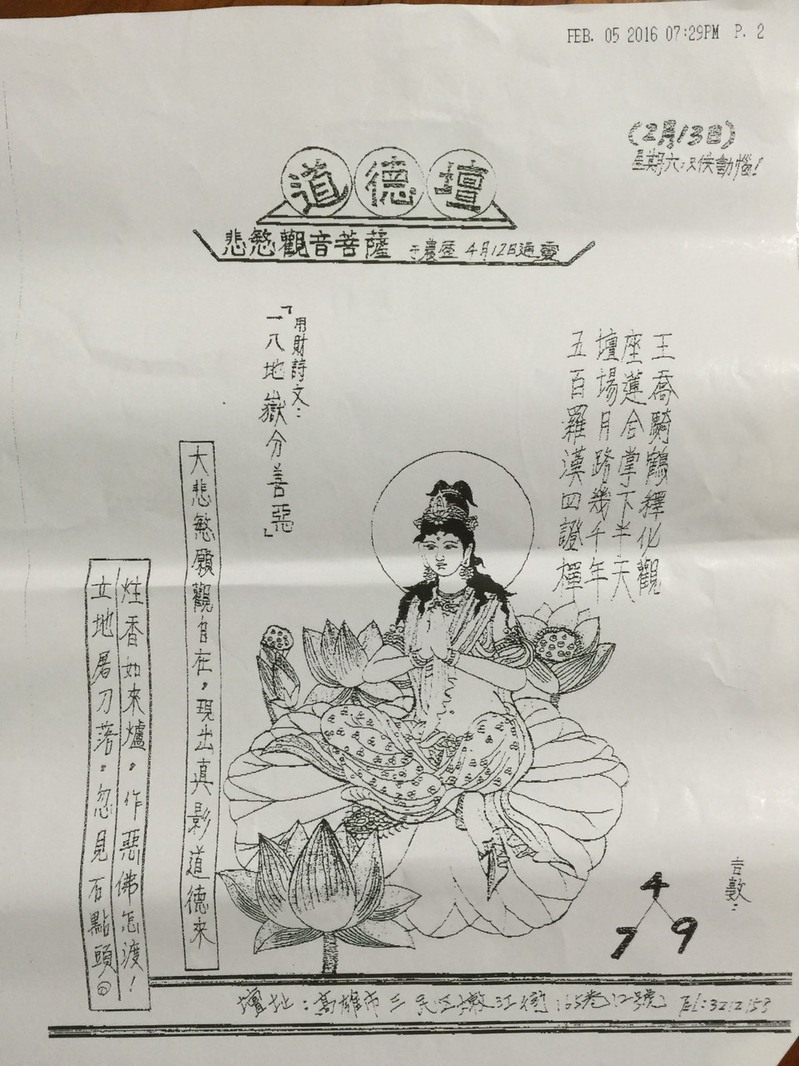 FEB. 05 2016 07:29PM P. 2
(2月13日)
星期六:又候動惱!
道德壇
悲愍觀音菩薩 于農歷 4月12日通靈
王喬騎鶴釋化觀
座蓮合掌下半天
壇場月踏幾千年
五百羅漢四證樿
用財詩文:
「一八地嶽分善惡」
大悲愍願觀自在,現出真影道德來
炷香如來爐,作惡佛怎渡!
立地屠刀落,忽見石點頭
吉數:
4
7 9
壇址:高雄市三民区 江街165巷12號 TEL:3212153